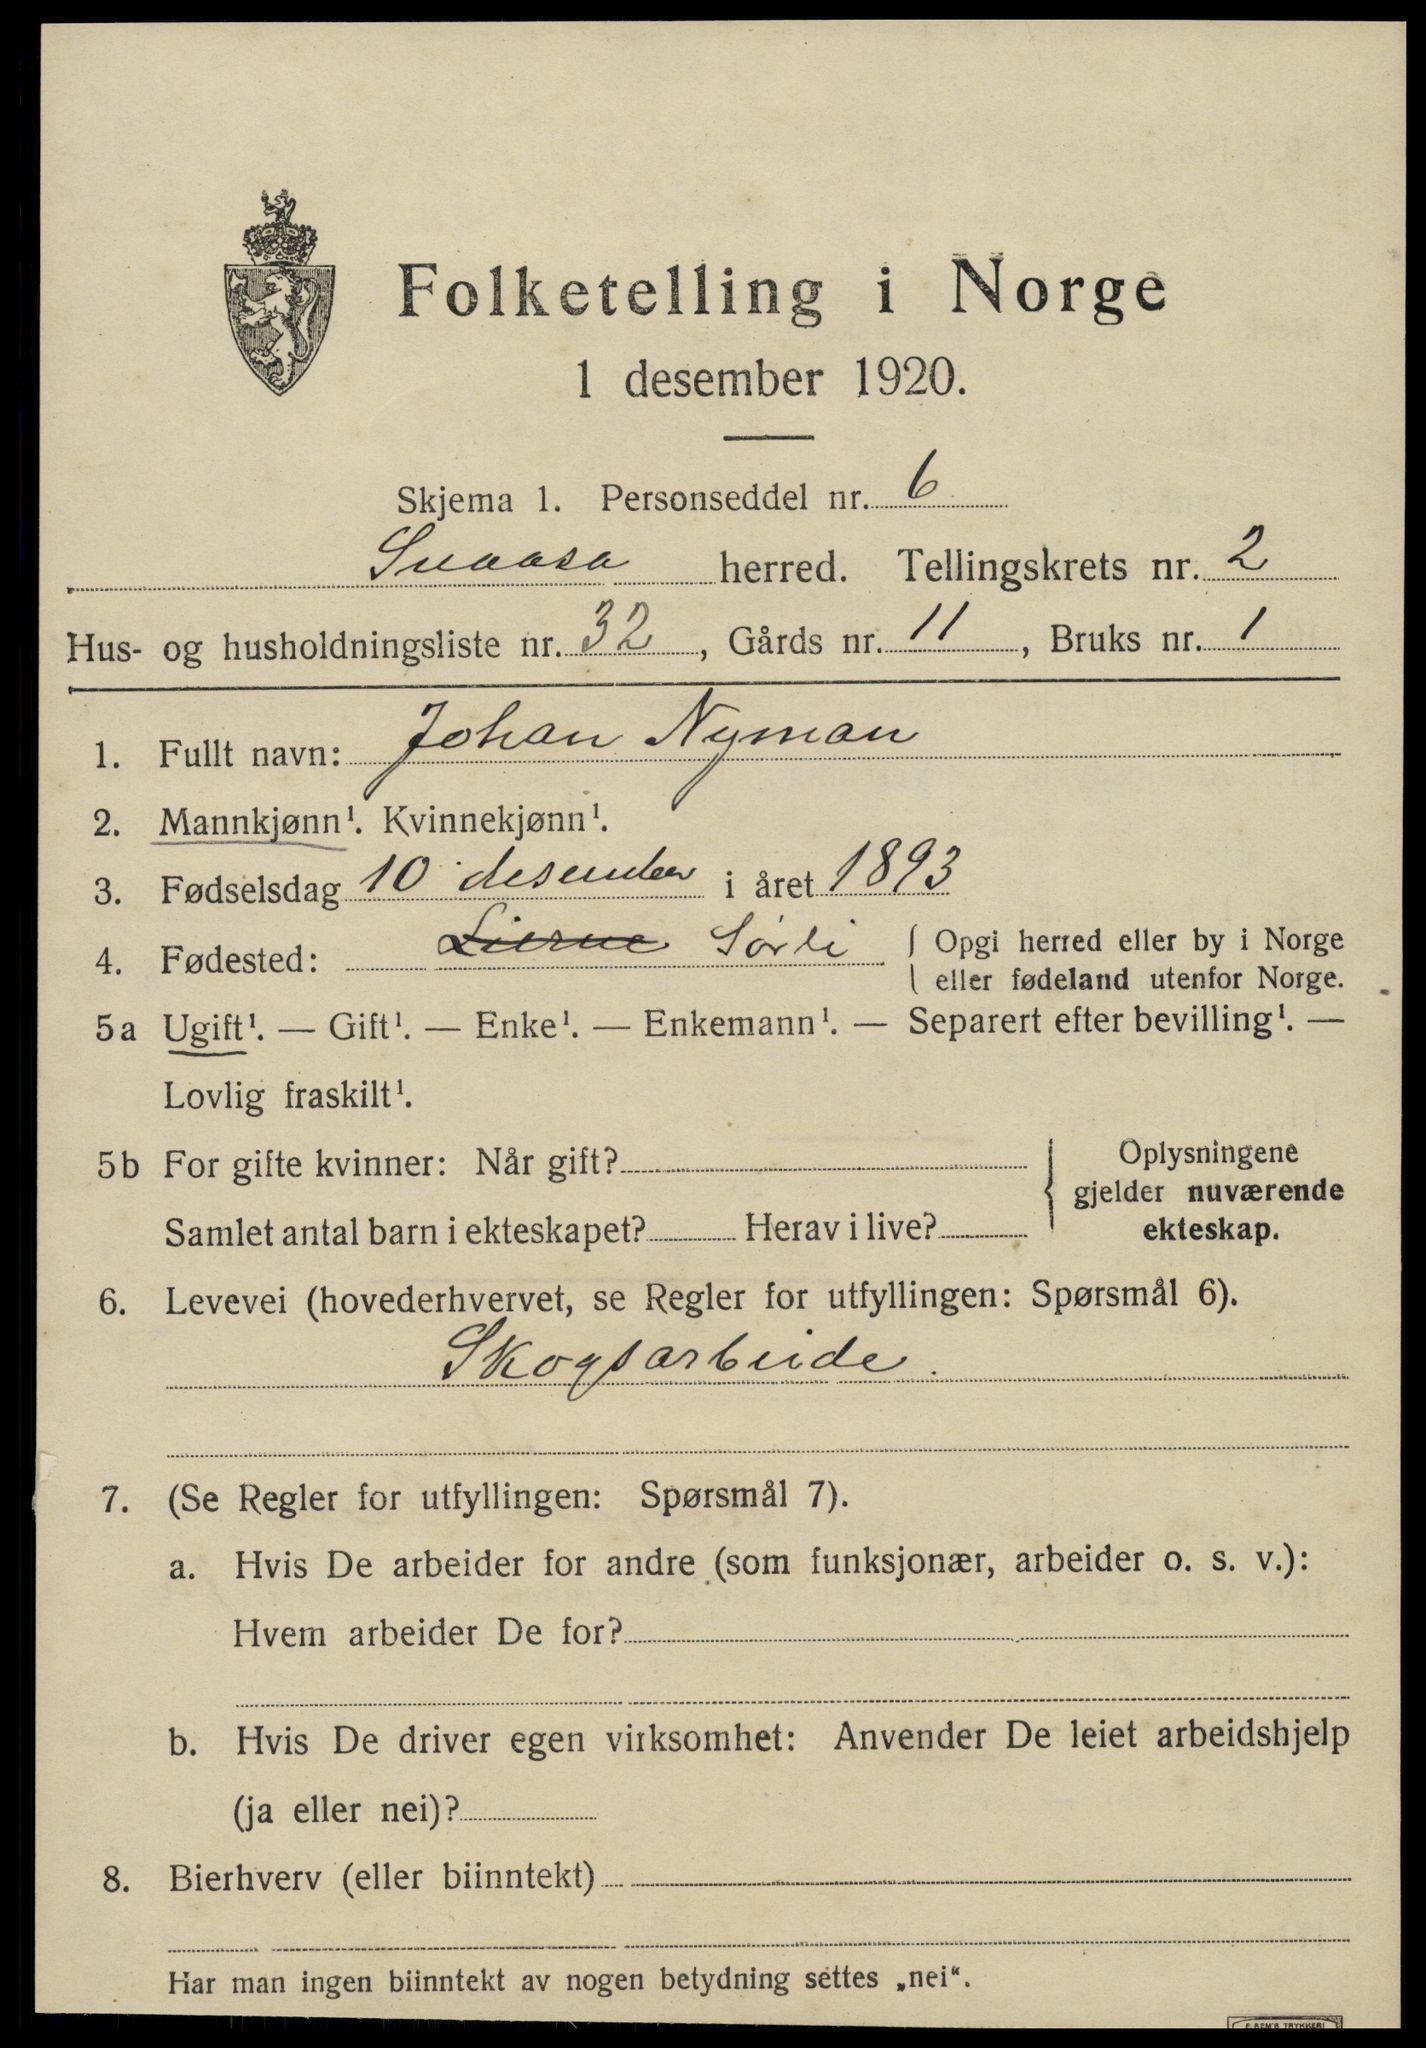 Folketelling i Norge
1 desember 1920.
Skjema 1. Personseddel nr. 6
Snaasa herred. Tellingskrets nr. 2
Hus- og husholdningsliste nr. 32, Gårds nr. 11, Bruks nr. 1
1. Fullt navn: Johan Nyman
2. Mannkjønn¹. Kvinnekjønn¹.
3. Fødselsdag 10 desember i året 1893
4. Fødested: Lierne Sørli { Opgi herred eller by i Norge
eller fødeland utenfor Norge.
5a Ugift¹. — Gift¹. — Enke¹. — Enkemann¹. — Separert efter bevilling¹. —
Lovlig fraskilt¹.
5b For gifte kvinner: Når gift?
Samlet antal barn i ekteskapet? Herav i live?
Oplysningene
gjelder nuværende
ekteskap.
6. Levevei (hovederhvervet, se Regler for utfyllingen: Spørsmål 6).
Skogsarbeide.
7. (Se Regler for utfyllingen: Spørsmål 7).
a. Hvis De arbeider for andre (som funksjonær, arbeider o. s. v.):
Hvem arbeider De for?
b. Hvis De driver egen virksomhet: Anvender De leiet arbeidshjelp
(ja eller nei)?
8. Bierhverv (eller biinntekt)
Har man ingen biinntekt av nogen betydning settes „nei“.